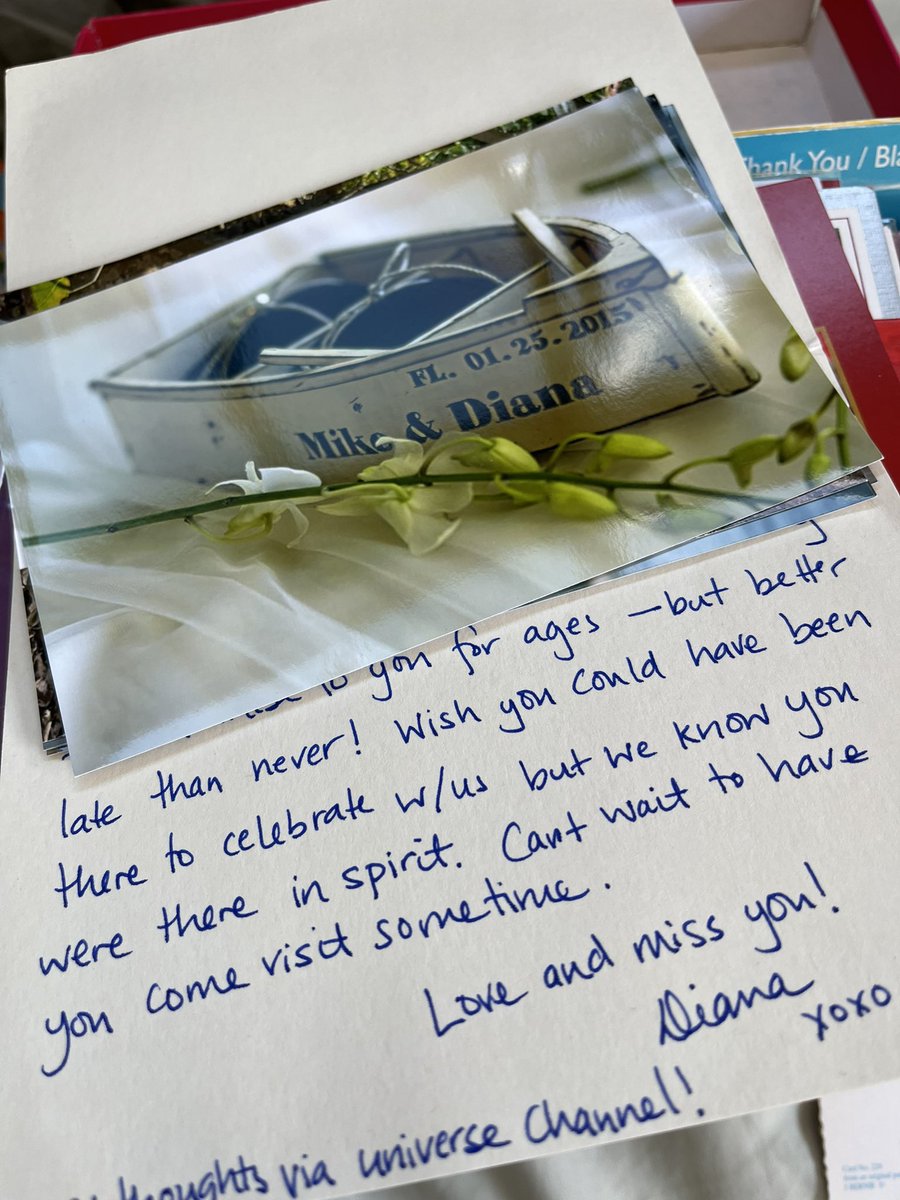 Thank You / Bla
FL. 01.25.2015
Mike & Diana
to you for ages – but better
late than never! Wish you could have been
there to celebrate w/us but we know you
were there in spirit. Cant wait to have
you come visit sometime.
Love and miss you!
Diana
xoxo
thoughts via universe Channel!